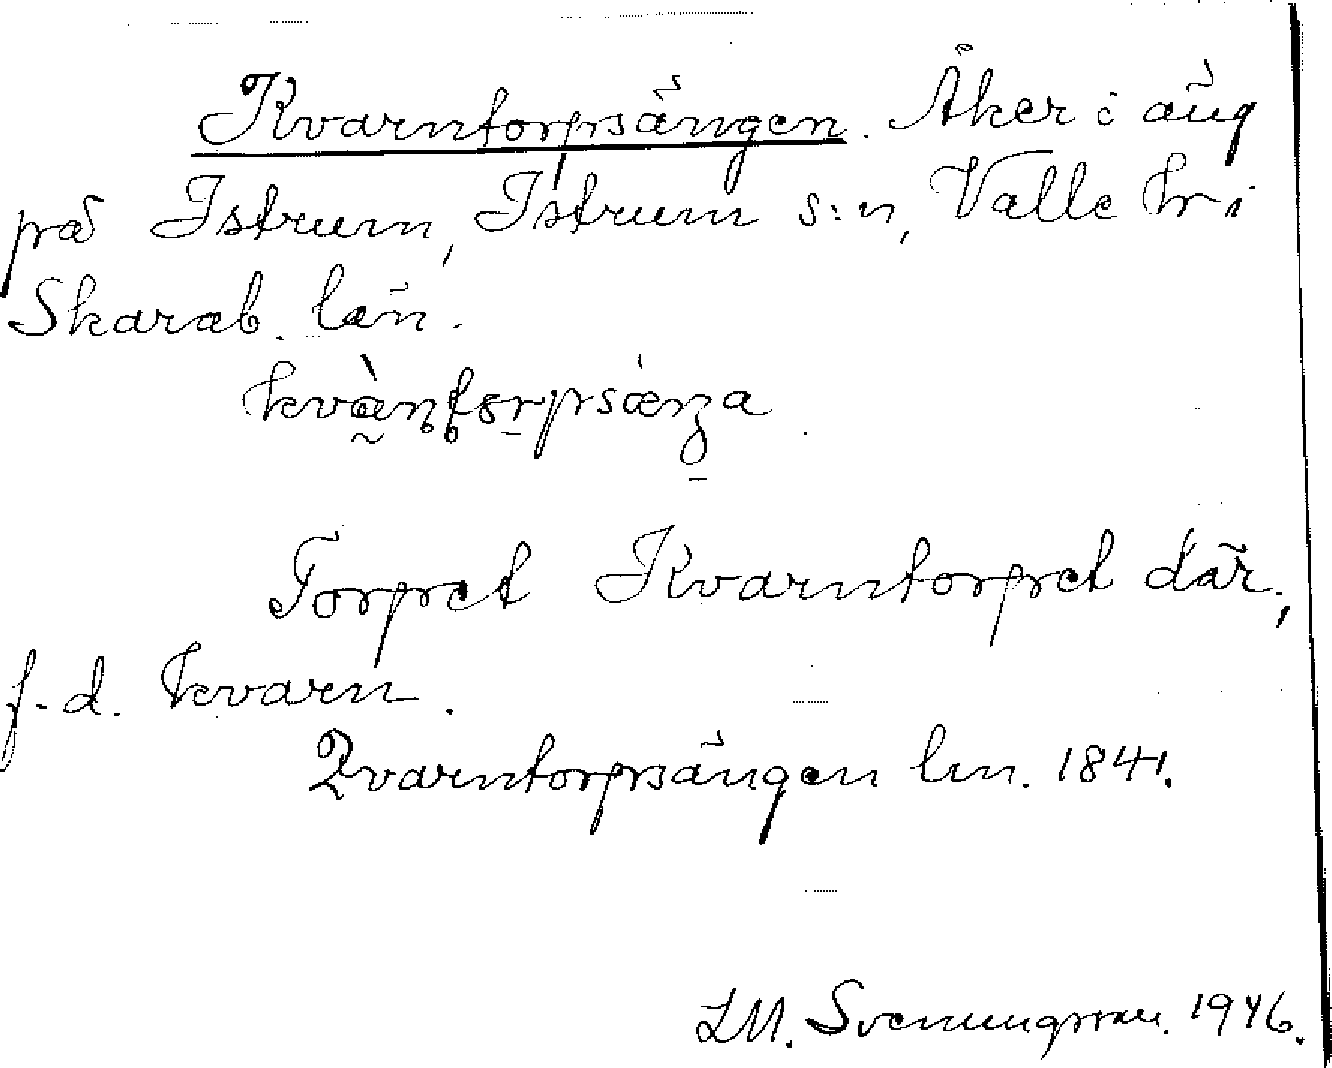 Kvarntorpsängen. Åker i äng
på Istrum, Istrum s:n, Valle hr i
Skarab. län.
Torpet Kvarntorpet där,
f.d. kvarn.
Qvarntorpsängen lm. 1841.
LM. Svenungsson. 1946.